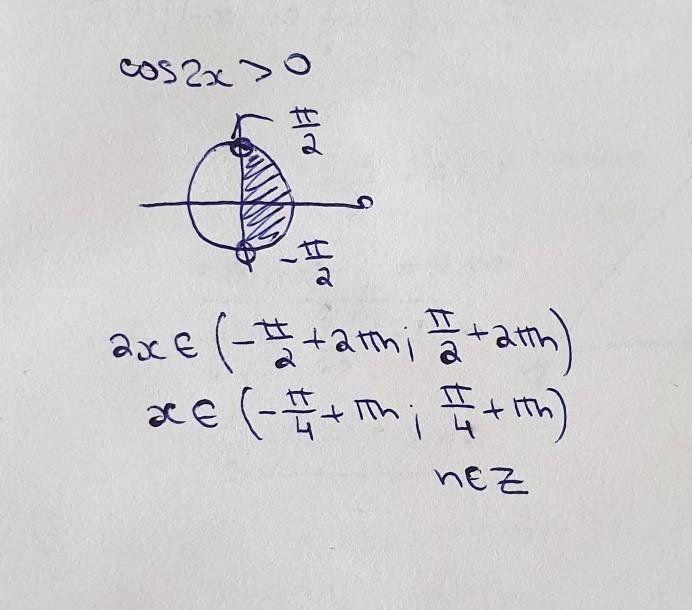 cos2x > 0
π/2
-π/2
2x ∈ (-π/2 + 2πn; π/2 + 2πn)
x ∈ (-π/4 + πn; π/4 + πn)
n∈Z